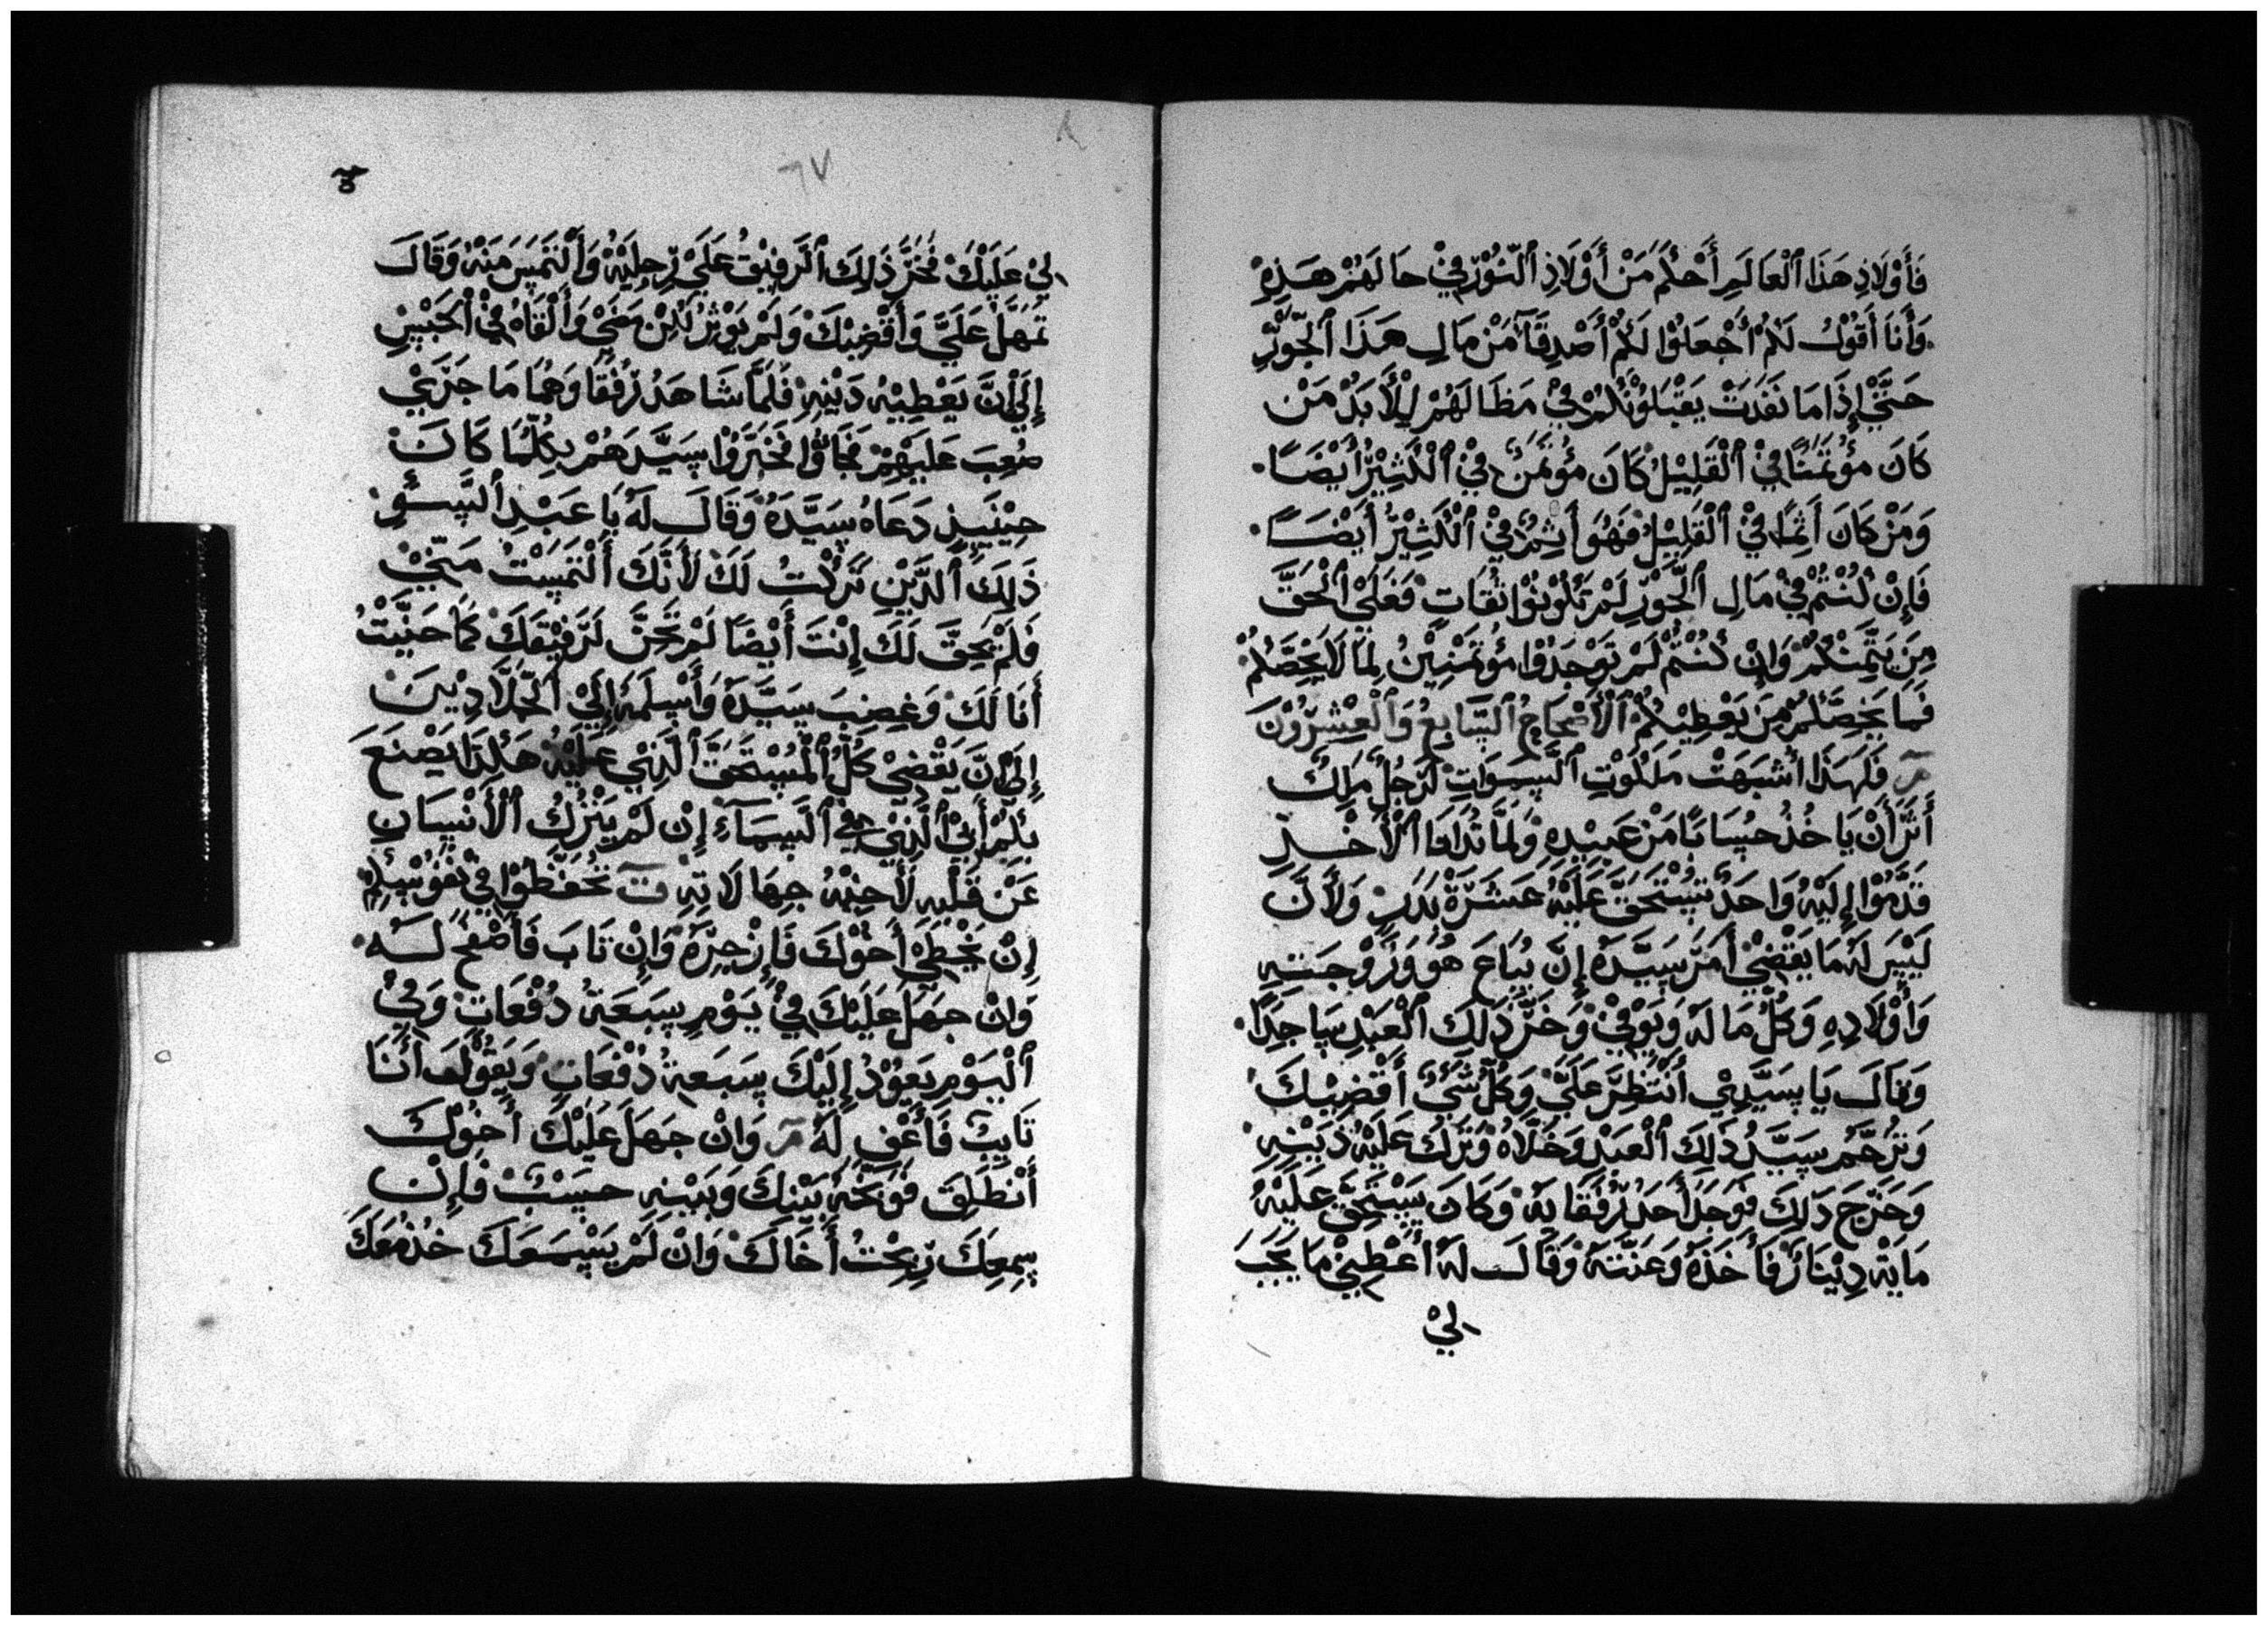 فَأَوْلَاذِ هَذَا ٱلْعَالَمِ أَحْكَمُ مَنْ أَوْلَاذِ ٱلنُّوْرِ فِيْ حَالَهُمْ هَذِهِ
وَأَنَا أَقُوْلُ لَكُمْ أَجْعَلُوْا لَكُمْ أَصْدِقَآءَ مَنْ مَالِ هَذَا ٱلجَّوْرِ
حَتَّىْ إِذَا مَا نَفَدَتْ يَقْبَلُوْنَكُمْ فِيْ مَظَالَهُمْ لِلْأَبَدْ مَنْ
كَانَ مؤُتَمَنًا فِيْ ٱلْقَلِيْلْ كَانَ مؤُتَمَنٌ فِيْ ٱلْكَثِيْرْ أَيْضَاً
وَمَنْ كَانَ أَثِمًا فِيْ ٱلْقَلِيْلْ فَهُوَ أَثِمٌ فِيْ ٱلْكَثِيْرْ أَيْضَاً
فَإِنْ كُنْتُمْ فِيْ مَالِ ٱلْجَوْرِ لَمْ تَكُوْنُوْا ثُقَاتٍ فَعَلَىْ ٱلْحَقَّ
مِنَ يَتَّمِنَكُمْ وَإِنْ كُنْتُمْ لَمْ تُوْجَدُوْا مؤُتَمَنِيْنَ لِمَا لَا يَخِصَّكُمْ
فَمَا يَخِصَّكُمْ مِنَ يَعْطِيْكُمْ ٱلْأَصْحَاحُ ٱلسَّابِعُ وَٱلْعِشْرُوْنَ
مَر فَلَهَذَا أَشْبَهَتْ مَلَكُوْتِ ٱلسَّمَوَاتِ لَرَجُلٍ مَلِكَ
أَثَرَ أَنْ يَاخُذُ حُسَابًا مَنْ عَبِيْدِهِ وَلَمَّا بَدَا فَا ٱلْأَخْذِ
قَدَّمُوْا إِلَيْهِ وَاحَدً تَسْتَحَقَّ عَلَيْهُ عَشَرَةْ بُدَرٍ وَلأَنَّ
لَيْسَ لَهُ مَا يَقْضِيْ أَمَرَ سَيِّدَهُ إِنَّ يُبَاعَ هُوَ وَزَوْجَتِهِ
وَأَوْلَادِهِ وَكُلُّ مَا لَهُ وَيُوْفِيْ وَخَرَّ ذَلِكَ ٱلْعَبْدِ سَاجِدًا
وَقَالَ يَا سَيِّدِيْ أَنْتَظِرَ عَلَيَّ وَكُلَّ شَيْءٍ أَقْضِيْكَ
وَتَرَحَّمَ سَيِّدُ ذَلِكَ ٱلْعَبْدِ وَخَلَّاهُ وَتَرَكَ عَلَيْهُ دَيْنِهِ
وَخَرَجَ ذَلِكَ فَوَجَدَ أَحَدَ رُفَقَايَهُ وَكَانَ يَسْتَحِقَّ عَلَيْهُ
مَايَةْ دِيْنَارْ فَأَخَذَهُ وَعَنَّتَهُ وَقَالَ لَهُ أَعْطِنِيْ مَا يَجَبَ
لِيْ
لِيْ عَلَيْكَ فَخَرَّ ذَلِكَ ٱلرَّفِيْقُ عَلَىْ رِجِلَيْهُ وَٱلْتَمَسَ مَنْهُ وَقَالَ
تَمَهَّلَ عَلَيَّ وَأَقْضِيْكَ وَلَمْ يَوْثِرْ لَكِنْ مَضَىْ وَأَلْقَاهُ فِيْ ٱلْحَبْسِ
إِلَىْ أَنَّ يَعْطِيْهُ دَيْنِهِ فَلَمَّا شَاهَدُ رُفُقَاوَهُمَا مَا جَرَىْ
صُعِبَ عَلَيْهِمْ فَجَاوْا فَخَبَّرَوْا سَيِّدَهُمْ بِكُلِّمَا كَانَ
حِيْنَيِذٍ دَعَاهُ سَيِّدَهُ وَقَالَ لَهُ يَا عَبْدِ ٱلسَّوْءِ
ذَلِكَ ٱلدَّيْنِ تَرَكْتُ لَكَ لأَنَّكَ أَلْتَمَسْتُ مَنِّيْ
فَلَمْ يَحِقَّ لَكَ إِنْتَ أَيْضًا لَمْ تَحَنَّ لَرَفِيْقَكَ كَمَا حَنَّيْتُ
أَنَا لَكَ وَغَضِبَ سَيِّدَهُ وَأَسْلَمَهُ إِلَىْ ٱلجَّلَّادِيْنَ
إِلَىْ أَنَّ يَقْضِيْ كُلَّ ٱلْمُسْتَحَقَّ ٱلَّذِيْ عَلَيْهُ هَكَذَا يَصْنَعَ
بِكُمْ أَبِيْ ٱلَّذِيْ فِيْ ٱلسَّمَآءِ إِنْ لَمْ يَتْرُكُ ٱلْأَنْسَانِ
عَنْ قَلْبِهِ لأَخِيْهُ جِهَالَاتِهِ ت تَحْفَظُوْا فِيْ نَفُوْسِكُمْ
إِنْ يَخْطِيْ أَخُوْكَ فَإِزْجِرْهُ وَإِنْ تَابَ فَأَصْفَحُ لَهُ
وَإِنْ جَهَلَ عَلَيْكَ فِيْ يَوْمٍ سَبَعَةْ دُفْعَاتٍ وَفِيْ
ٱلْيَوْمِ يَعُوْدُ إِلَيْكَ سَبَعَةْ دُفْعَاتٍ وَيَقُوْلُ أَنَا
تَايِبٌ فَأَعْفِ لَهُ مَر وَإِنْ جَهَلَ عَلَيْكَ أَخُوْكَ
أَنْطَلِقَ فَوَبِّخَهُ بَيْنَكَ وَبَيْنِهِ حَسَبٌ فَإِنْ
سِمِعَكَ رِبِحْتُ أَخَاكَ وَإِنْ لَمْ يَسْمَعَكَ خُذْ مَعَكَ